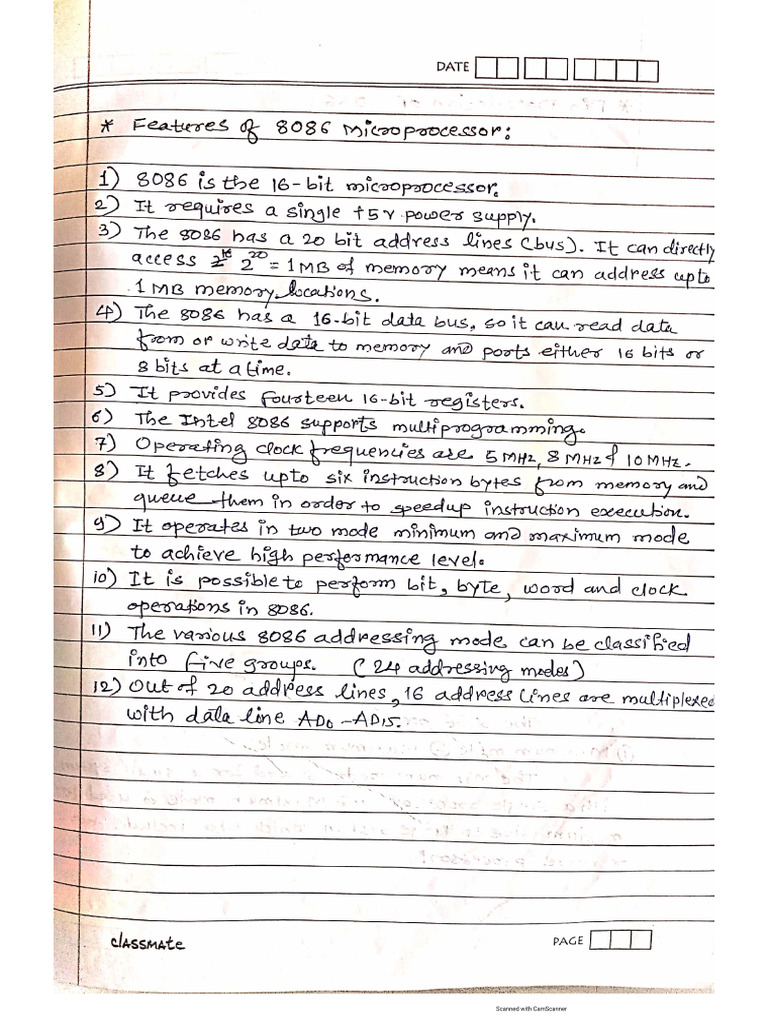 DATE
* Features of 8086 Microprocessor:
1) 8086 is the 16-bit microprocessor.
2) It requires a single +5v power supply.
3) The 8086 has a 20 bit address lines (bus). It can directly
access 2^20 = 1MB of memory means it can address upto
1 MB memory locations.
4) The 8086 has a 16-bit data bus, so it can read data
from or write data to memory and ports either 16 bits or
8 bits at a time.
5) It provides fourteen 16-bit registers.
6) The Intel 8086 supports multiprogramming.
7) Operating clock frequencies are 5 MHz, 8 MHz & 10 MHz.
8) It fetches upto six instruction bytes from memory and
queue them in order to speedup instruction execution.
9) It operates in two mode minimum and maximum mode
to achieve high performance level.
10) It is possible to perform bit, byte, word and clock
operations in 8086.
11) The various 8086 addressing mode can be classified
into five groups. (24 addressing modes)
12) Out of 20 address lines, 16 address lines are multiplexed
with data line AD0 - AD15.
classmate
PAGE
Scanned with CamScanner